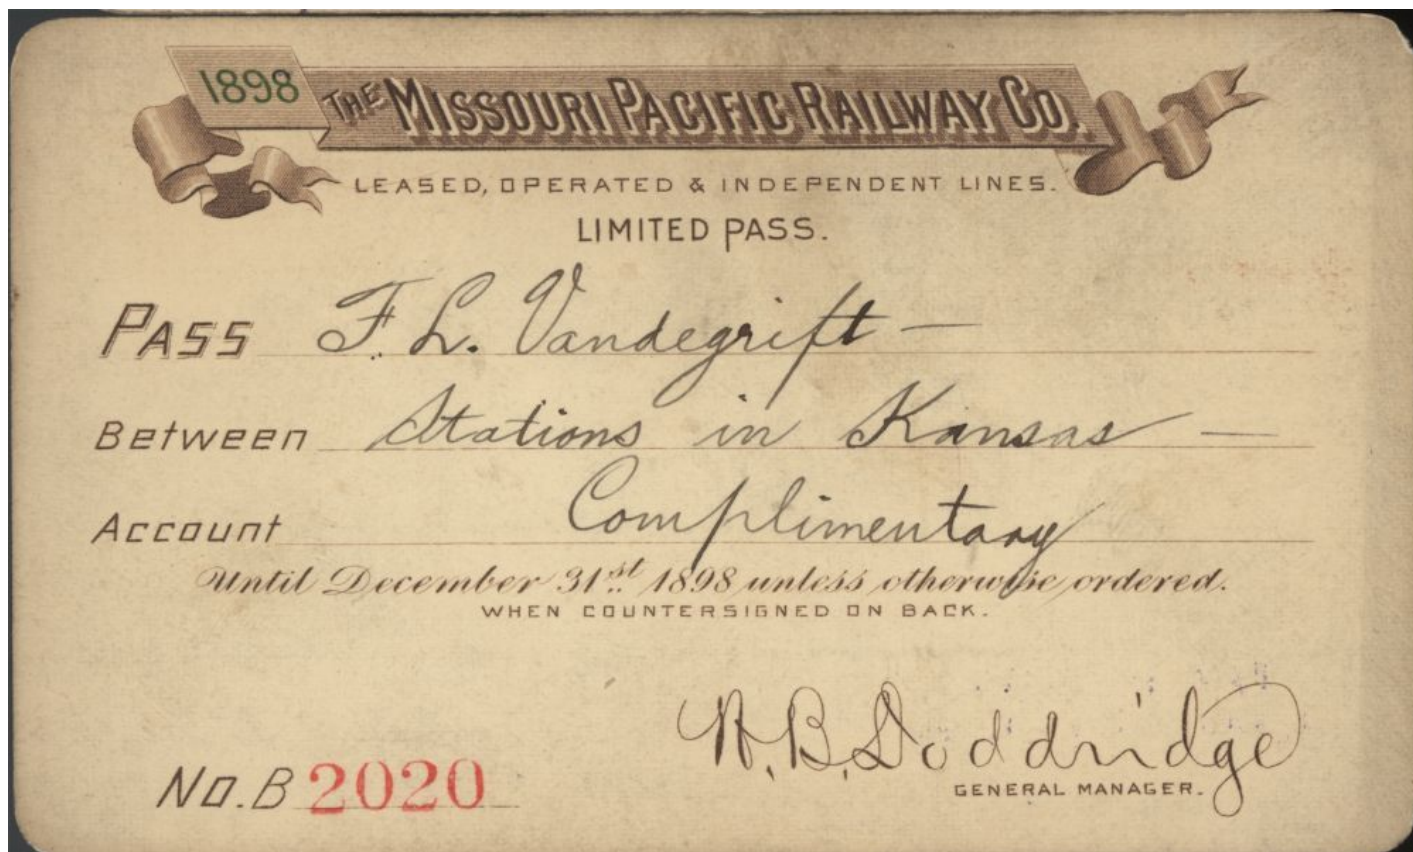 1898 THE MISSOURI PACIFIC RAILWAY CO.
LEASED, OPERATED & INDEPENDENT LINES.
LIMITED PASS.
PASS F. L. Vandegrift —
Between Stations in Kansas —
Account Complimentary
Until December 31st 1898 unless otherwise ordered.
WHEN COUNTERSIGNED ON BACK.
W. B. Doddridge
GENERAL MANAGER.
No. B 2020